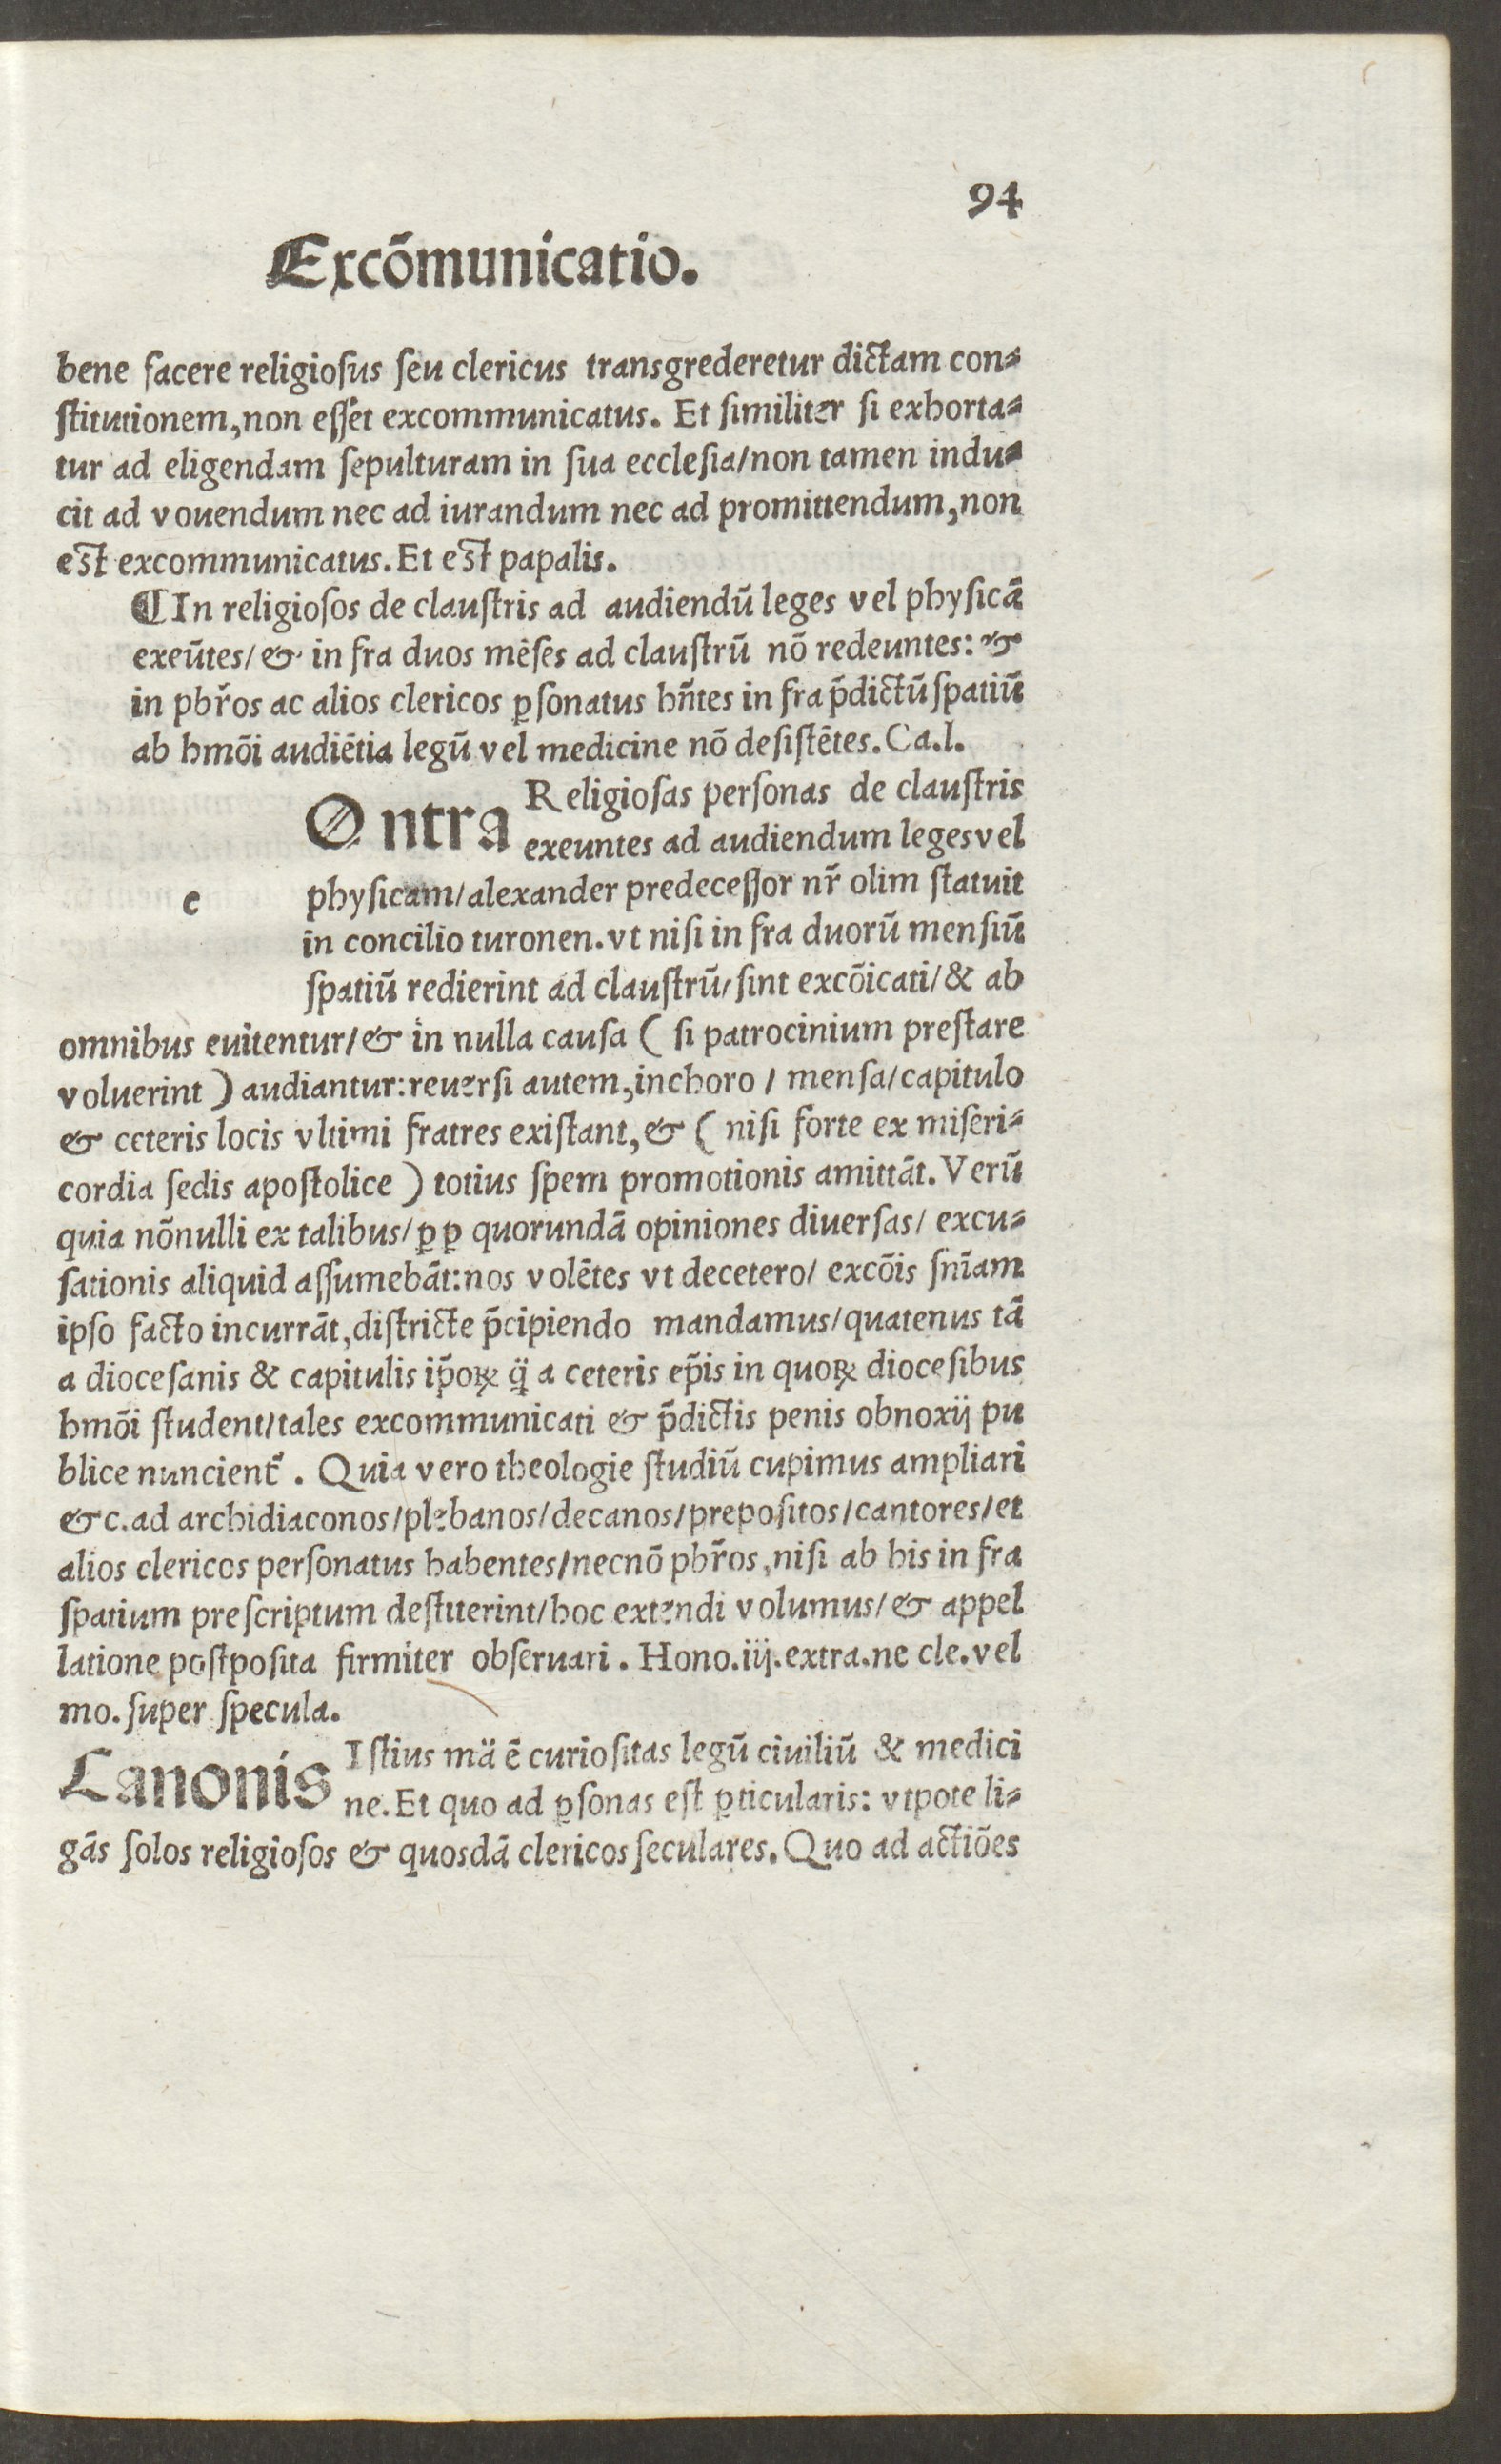 94
Excõmunicatio.
bene facere religioſus ſeu clericus transgrederetur dictam con⸗
ſtitutionem,non eſſet excommunicatus. Et ſimiliter ſi exhorta⸗
tur ad eligendam ſepulturam in ſua eccleſia/non tamen indu⸗
cit ad vouendum nec ad iurandum nec ad promittendum,non
eſt excommunicatus. Et eſt papalis.
¶In religioſos de clauſtris ad audiendũ leges vel phyſicã
exeũtes/& in fra duos mẽſes ad clauſtrũ nõ redeuntes: &
in pbr̃os ac alios clericos ꝑſonatus hñtes in fra p̃dictũ ſpatiũ
ab hmõi audiẽtia legũ vel medicine nõ deſiſtẽtes. Ca.l.
Ontra Religioſas perſonas de clauſtris
exeuntes ad audiendum leges vel
e phyſicam/alexander predeceſſor nr̃ olim ſtatuit
in concilio turonen. vt niſi in fra duorũ menſiũ
ſpatiũ redierint ad clauſtrũ/ſint excõicati/& ab
omnibus euitentur/& in nulla cauſa ( ſi patrocinium preſtare
voluerint ) audiantur: reuerſi autem,in choro / menſa/capitulo
& ceteris locis vltimi fratres exiſtant,& ( niſi forte ex miſeri⸗
cordia ſedis apoſtolice ) totius ſpem promotionis amittãt. Verũ
quia nõnulli ex talibus/ ꝑꝑ quorundã opiniones diuerſas/ excu⸗
ſationis aliquid aſſumebãt: nos volẽtes vt decetero/ excõis ſnĩam
ipſo facto incurrãt,diſtricte p̃cipiendo mandamus/quatenus tã
a dioceſanis & capitulis ip̃oꝝ q̃ a ceteris ep̃is in quoꝝ dioceſibus
hmõi ſtudent/tales excommunicati & p̃dictis penis obnoxij pu
blice nuncient᷑. Quia vero theologie ſtudiũ cupimus ampliari
&c. ad archidiaconos/plebanos/decanos/prepoſitos/cantores/et
alios clericos perſonatus habentes/necnõ pbr̃os,niſi ab his in fra
ſpatium preſcriptum deſtiterint/hoc extendi volumus/& appel
latione poſtpoſita firmiter obſeruari. Hono.iij.extra.ne cle.vel
mo. ſuper ſpecula.
Canonis Iſtius mã ẽ curioſitas legũ ciuiliũ & medici
ne. Et quo ad ꝑſonas eſt ꝑticularis: vtpote li⸗
gãs ſolos religioſos & quosdã clericos ſeculares. Quo ad actiões